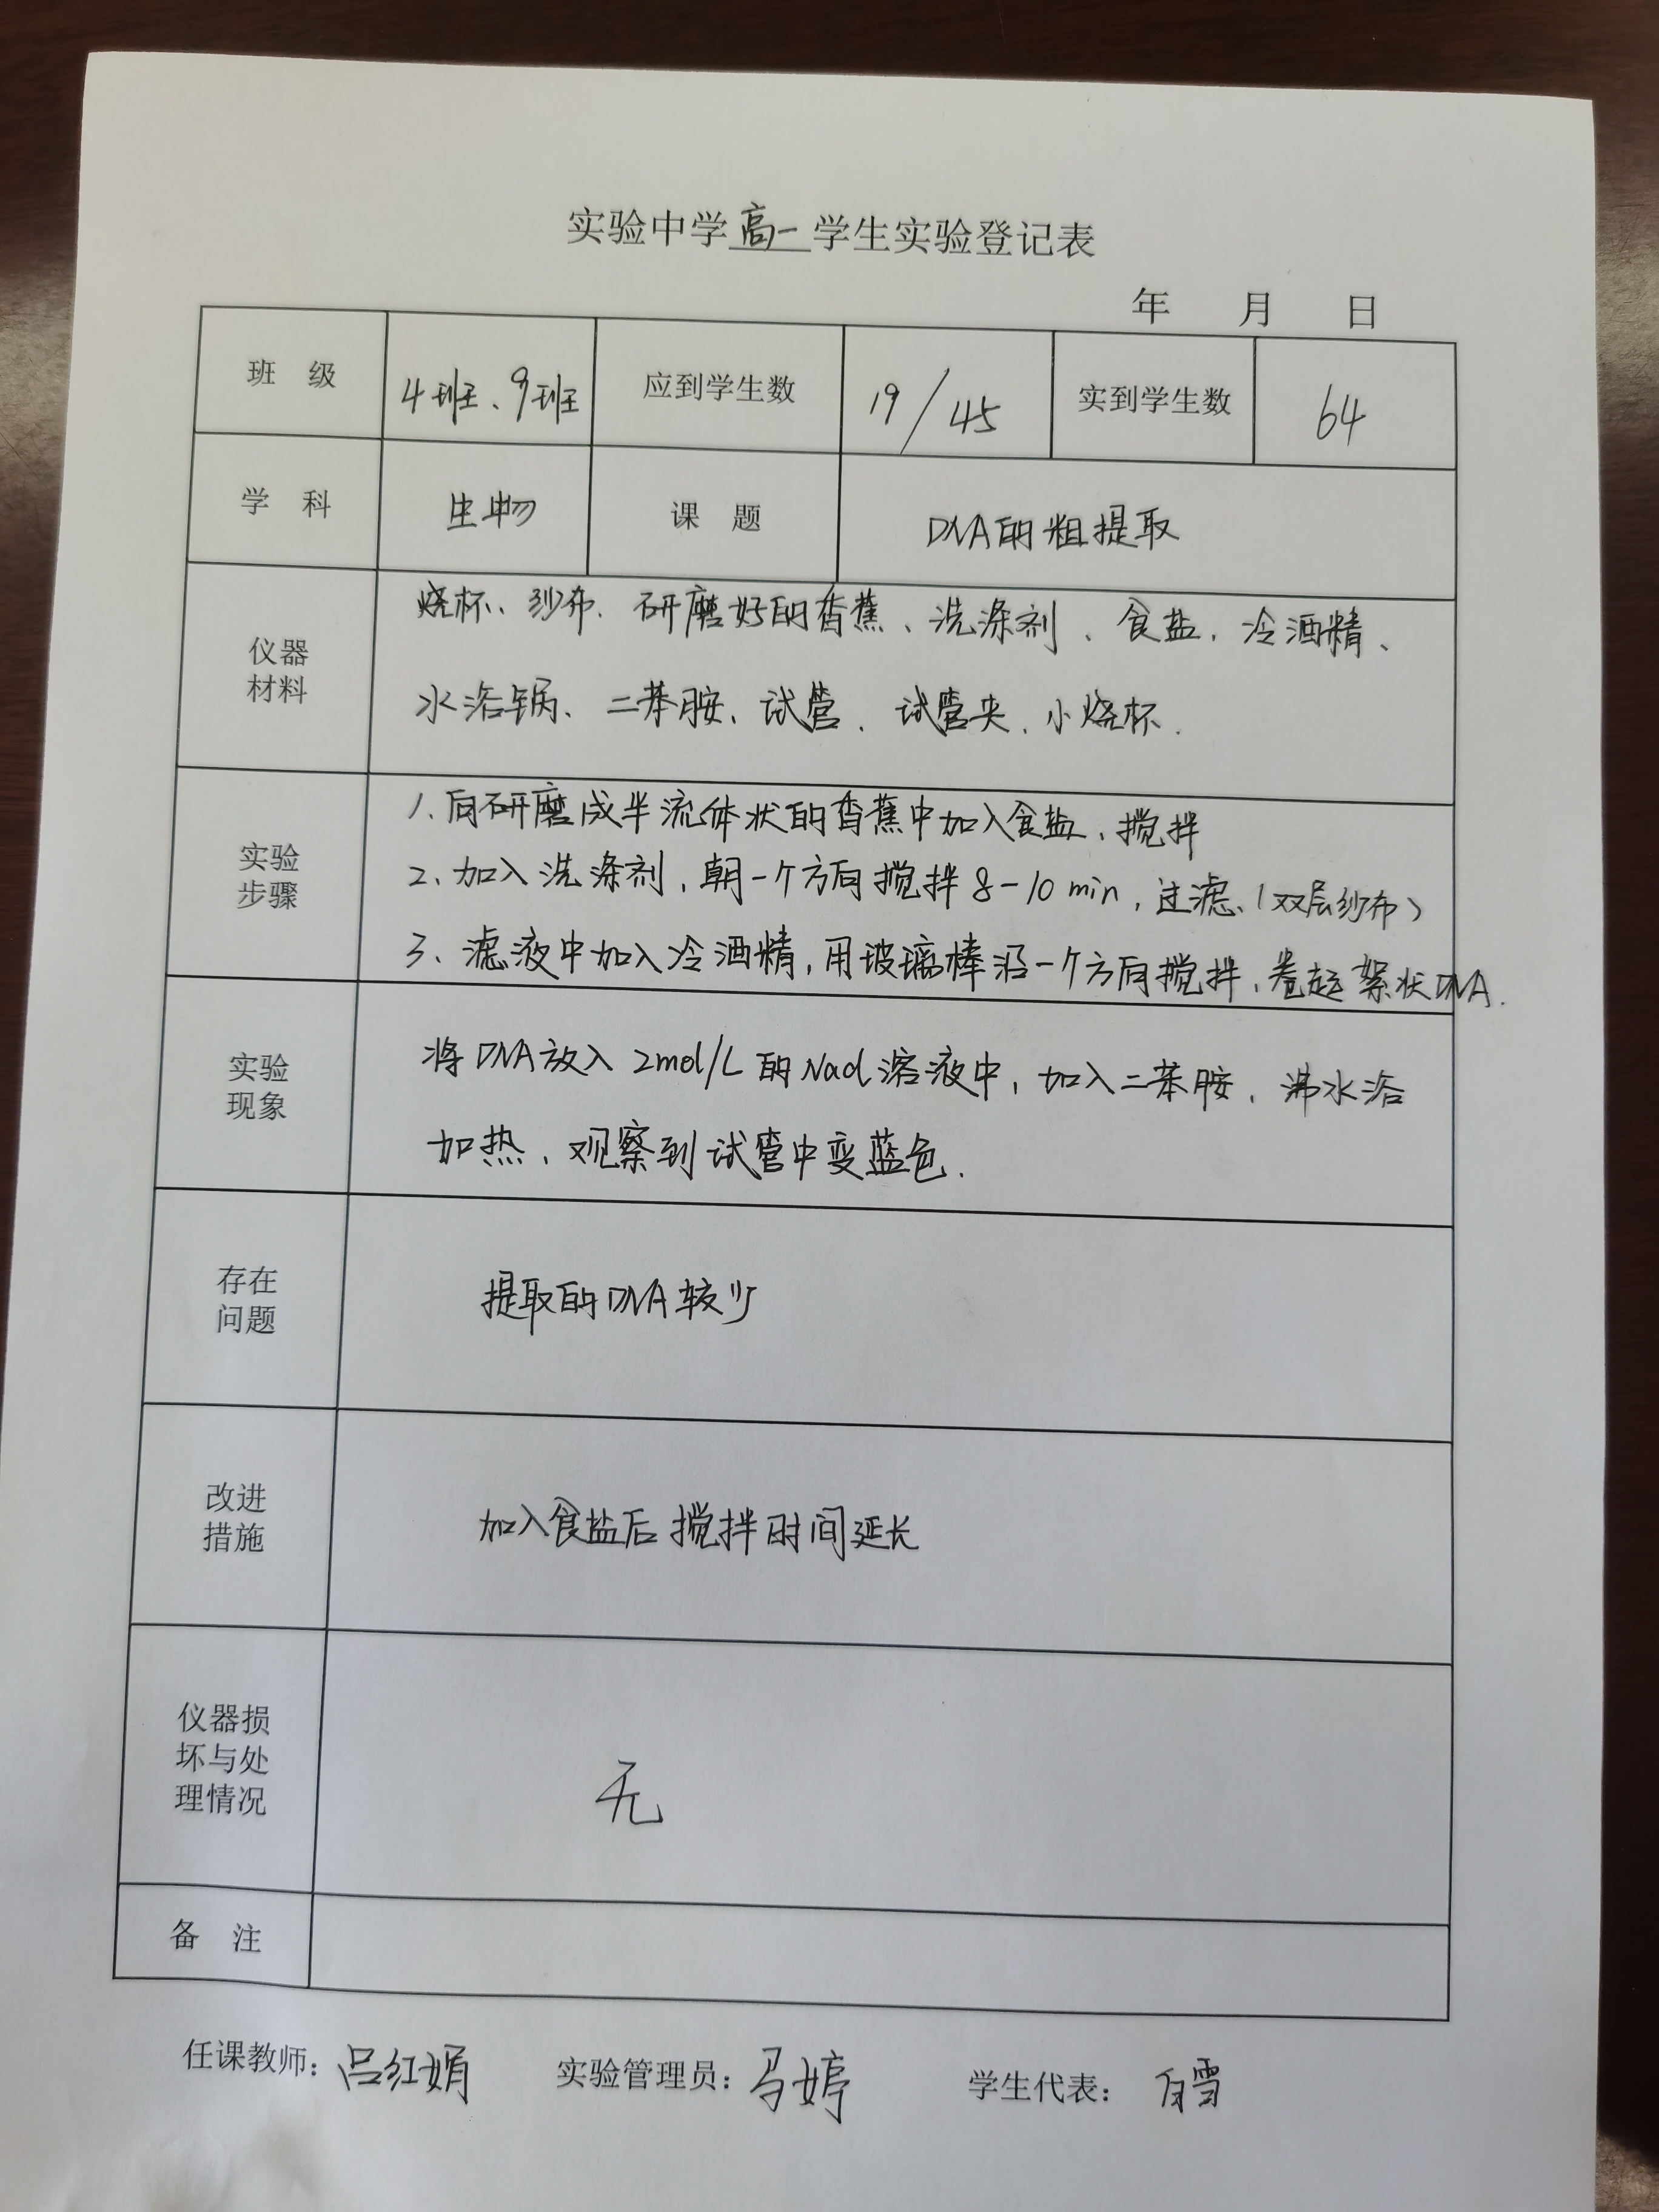 实验中学高一学生实验登记表
年 月 日
班 级 4班、9班 应到学生数 19/45 实到学生数 64
学 科 生物 课 题 DNA的粗提取
仪器
材料
烧杯、纱布、研磨好的香蕉、洗涤剂、食盐、冷酒精、
水浴锅、二苯胺、试管、试管夹、小烧杯.
实验
步骤
1、向研磨成半流体状的香蕉中加入食盐、搅拌
2、加入洗涤剂,朝一个方向搅拌8-10min,过滤、(双层纱布)
3、滤液中加入冷酒精,用玻璃棒沿一个方向搅拌,卷起絮状DNA.
实验
现象
将DNA放入2mol/L的Nacl溶液中,加入二苯胺,沸水浴
加热,观察到试管中变蓝色.
存在
问题
提取的DNA较少
改进
措施
加入食盐后搅拌时间延长
仪器损
坏与处
理情况
无
备 注
任课教师:吕红娟 实验管理员:马婷 学生代表:白雪